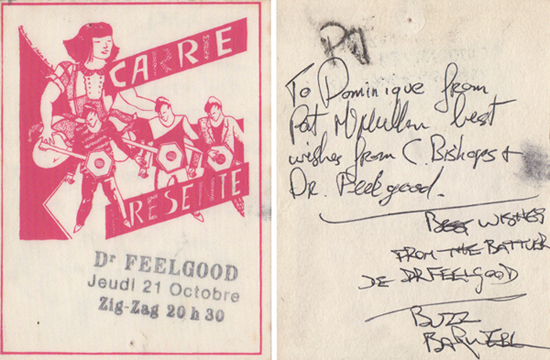 CARRE
PRESENTE
Dr FEELGOOD
Jeudi 21 Octobre
Zig-Zag 20 h 30
To Dominique from
Pat McMullan best
wishes from C. Bishops +
Dr. Feelgood.
BEST WISHES
FROM THE BATTUER
DE DR FEELGOOD
BUZZ
BARWELL